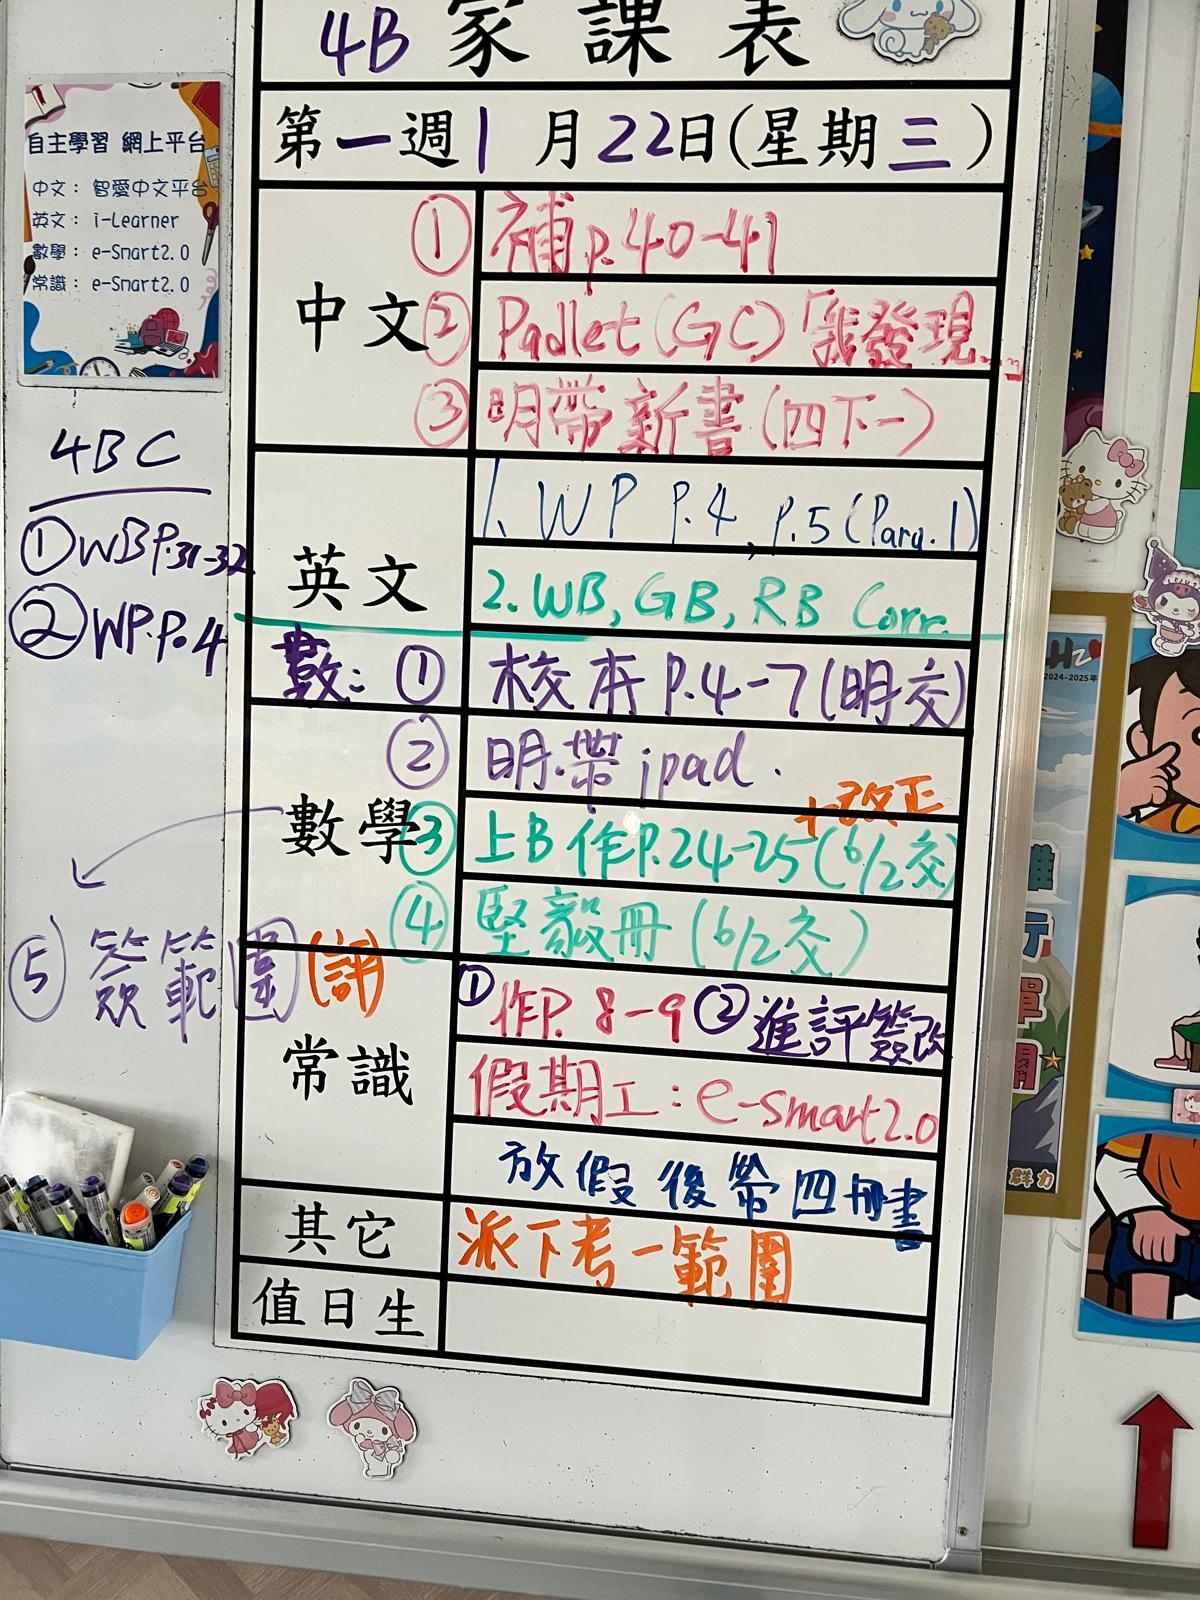 4B 家課表
第一週 1月22日(星期三)
自主學習 網上平台
中文： 智愛中文平台
英文： i-Learner
數學： e-Smart2.0
常識： e-Smart2.0
中文
① 補 p.40-41
② Padlet (GC)「我發現...」
③ 明帶新書(四下一)
4BC
① WB P.31-32
② WP. P.4
英文
1. WP P.4, P.5 (Para.1)
2. WB, GB, RB Corr.
數: ① 校本 P.4-7(明交)
數學
② 明.帶 ipad.
+改正
③ 上B 作P.24-25(6/2交)
④ 堅毅冊 (6/2交)
⑤ 簽範圍(評)
常識
① 作P. 8-9 ② 進評簽改
假期工: e-smart2.0
放假後帶四冊書
其它
派下考一範圍
值日生
2024-2025年
群力